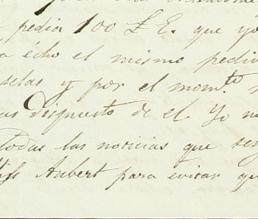 pedia 100 £ E. que yo
a écho el mismo pedi
selas y por el momto
as dispuesto de el Yo no
Todas las noticias que se
Miss Aubert para evitar qu